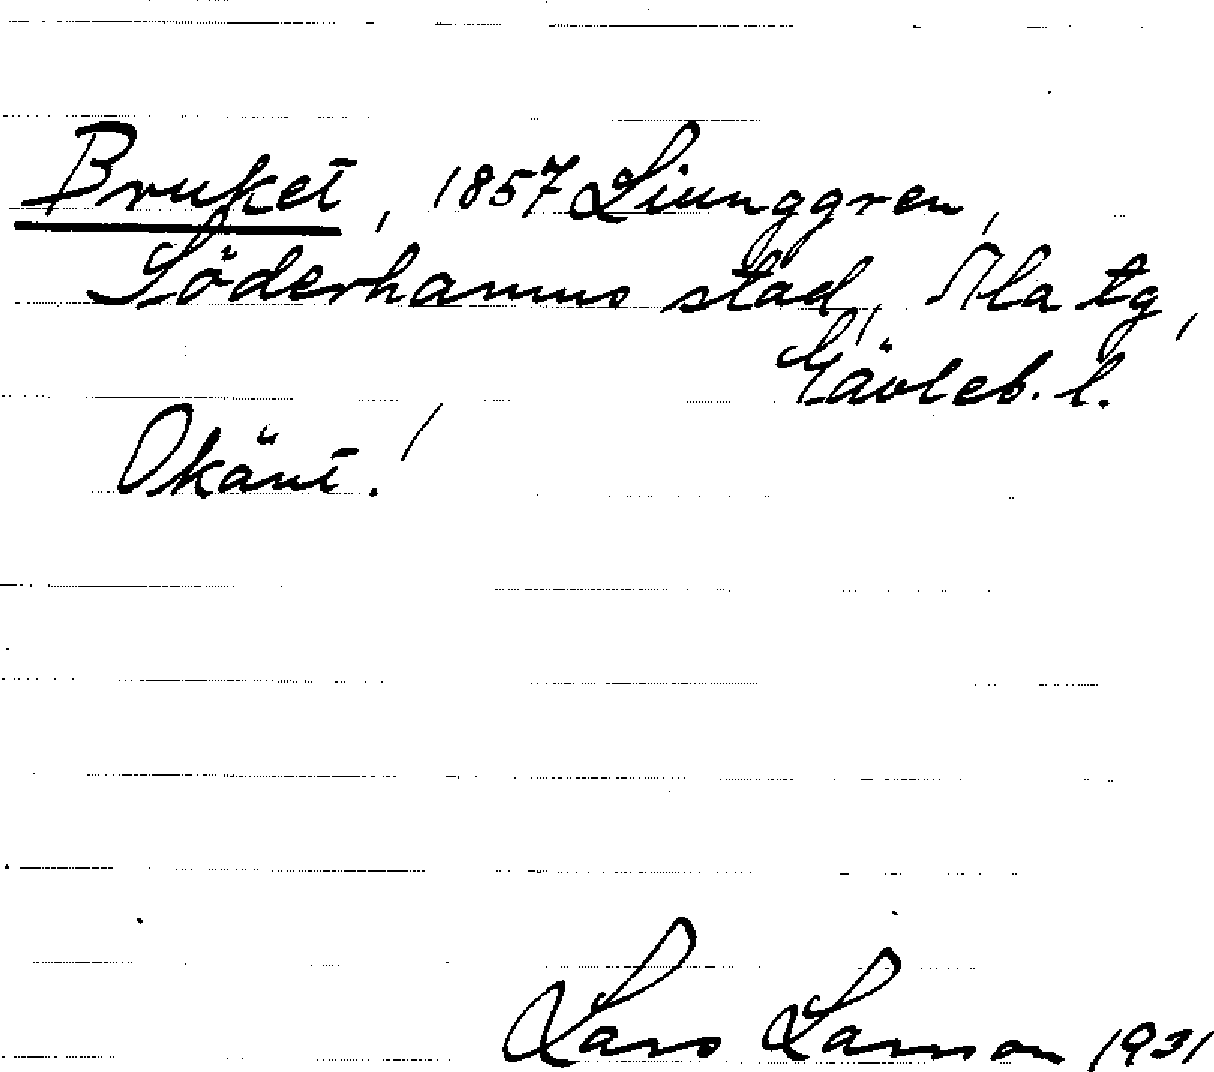 Bruket, 1857 Ljunggren,
Söderhamns stad, Ala tg,
Gävleb. l.
Okänt!
Lars Larsson 1931